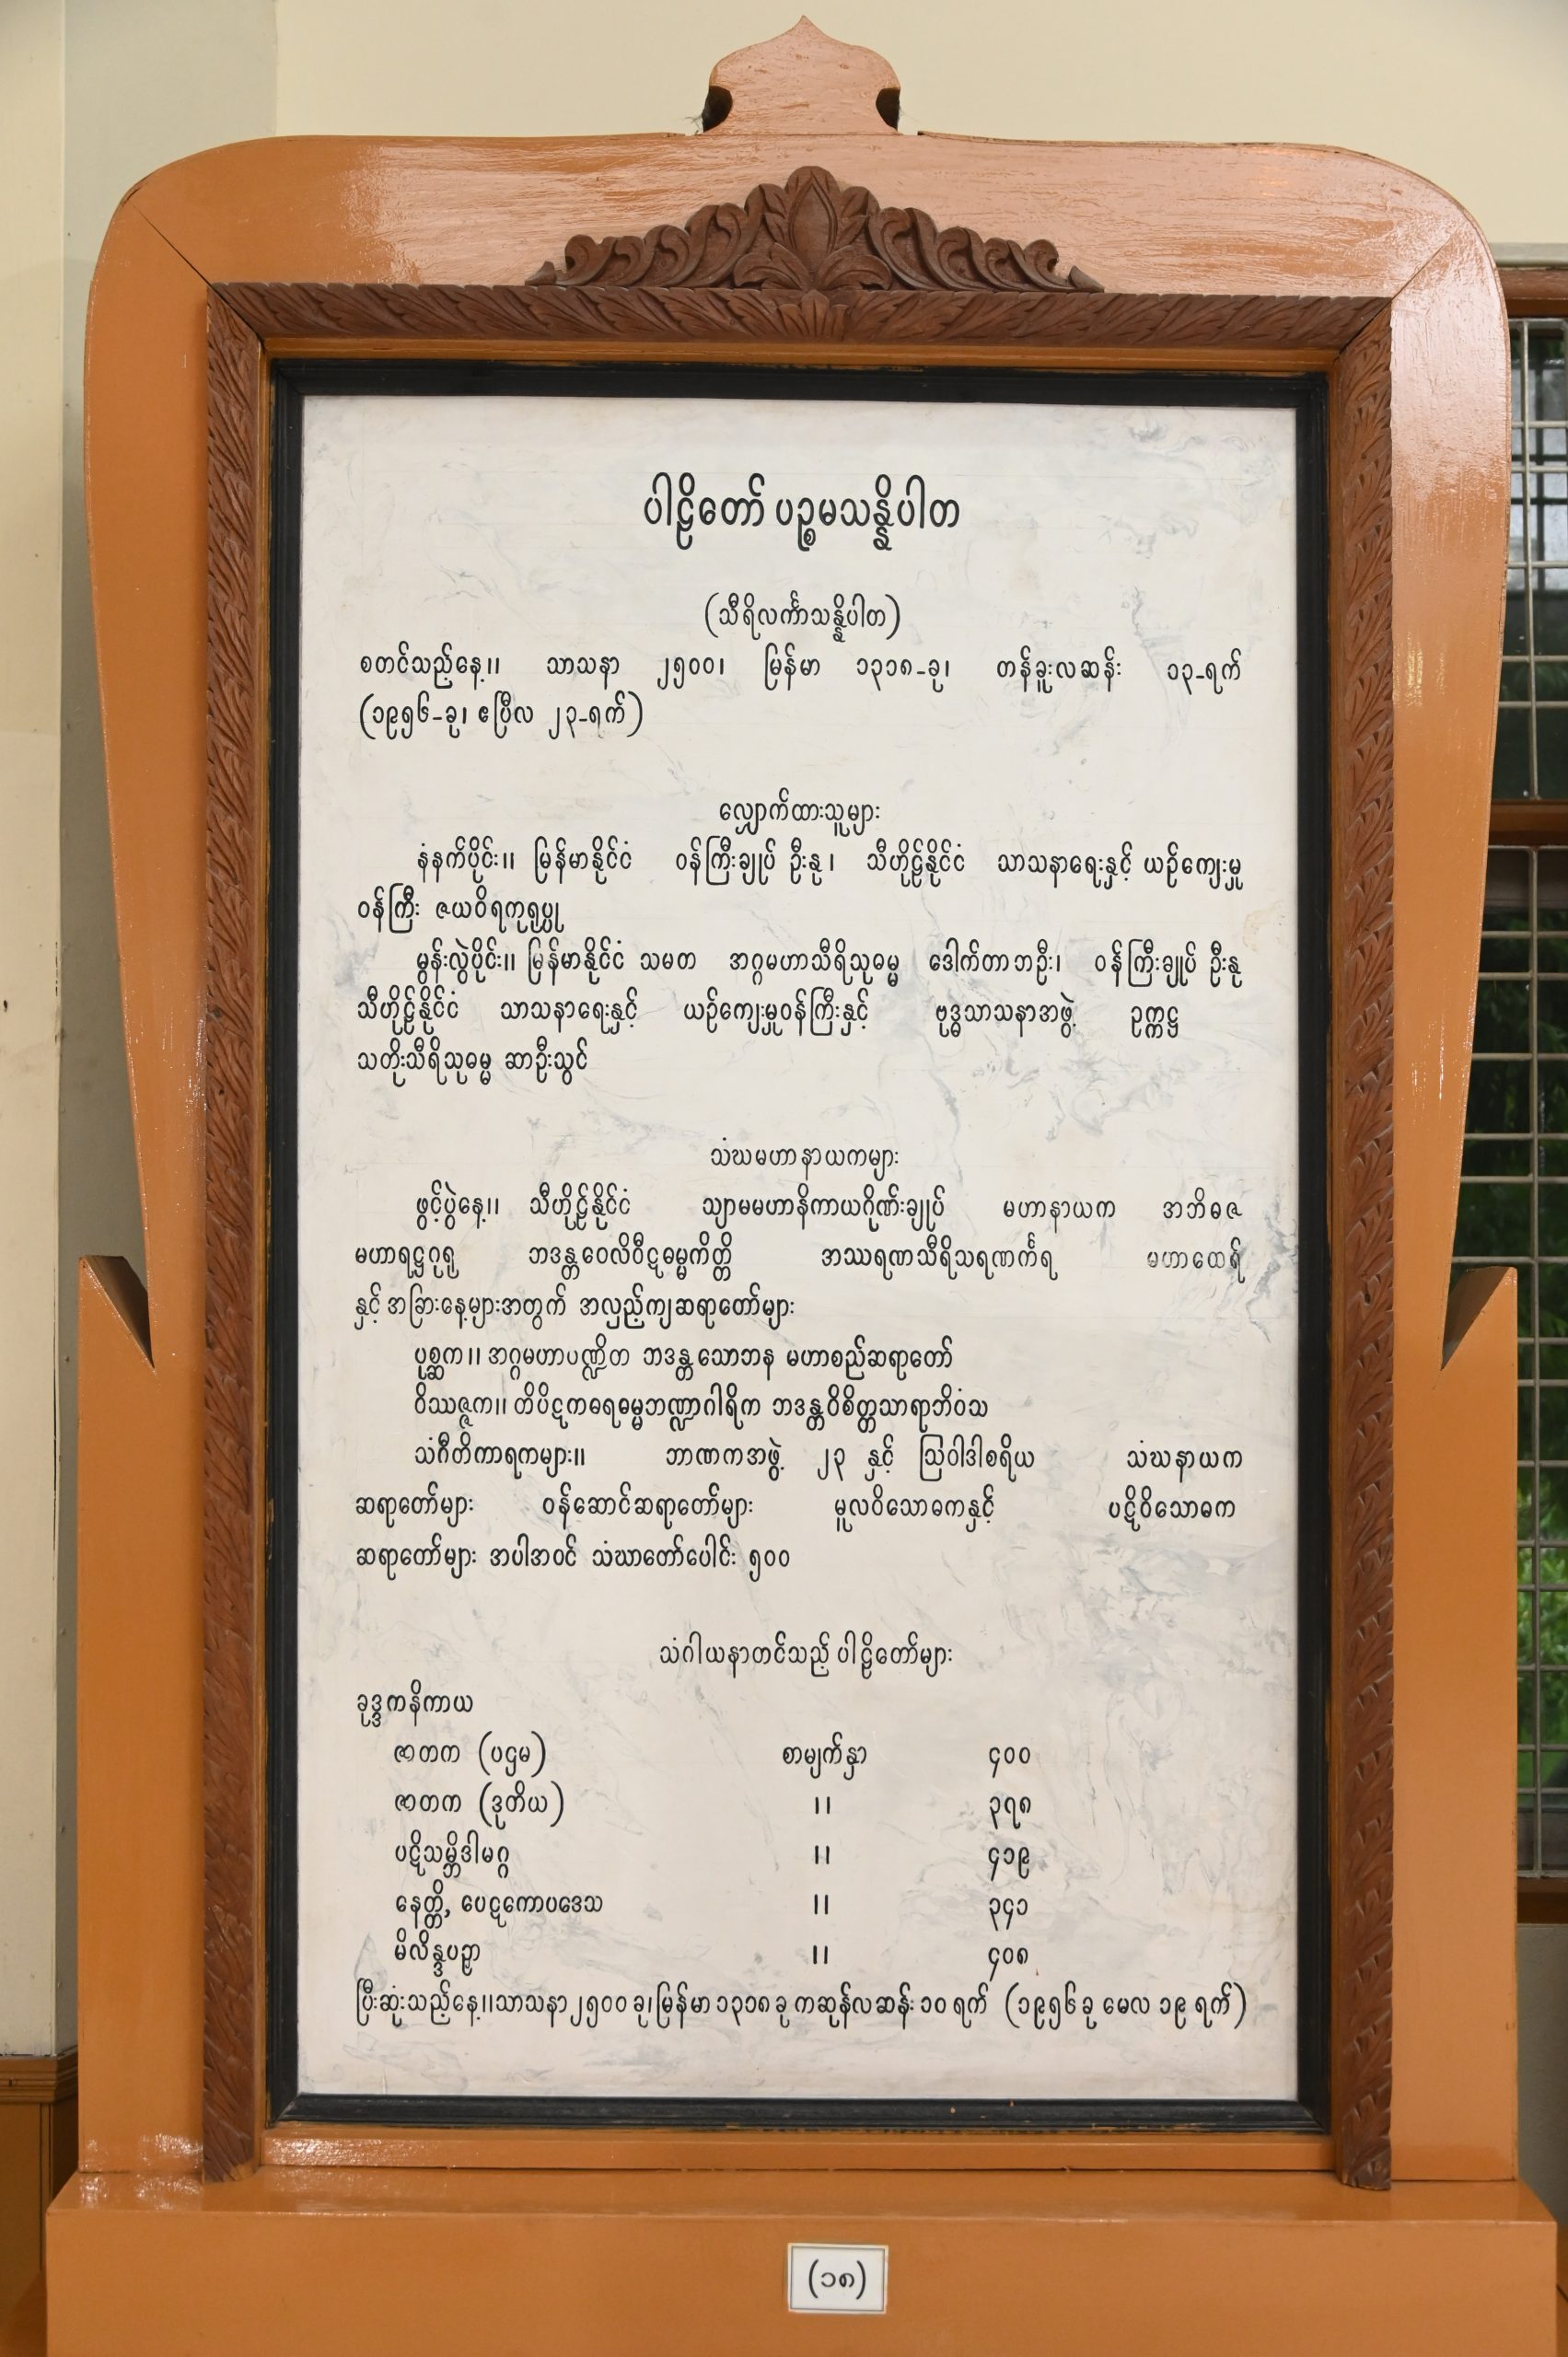 ပါဠိတော် ပဉ္စမသန္နိပါတ
(သီရိလင်္ကာသန္နိပါတ)
စတင်သည့်နေ့။ သာသနာ ၂၅၀၀၊ မြန်မာ ၁၃၁၈-ခု၊ တန်ခူးလဆန်း ၁၃-ရက်
(၁၉၅၆-ခု၊ ဧပြီလ ၂၃-ရက်)
လျှောက်ထားသူများ
နံနက်ပိုင်း။ မြန်မာနိုင်ငံ ဝန်ကြီးချုပ် ဦးနု၊ သီဟိုဠ်နိုင်ငံ သာသနာရေးနှင့် ယဉ်ကျေးမှု
ဝန်ကြီး ဇယဝိရကုရုပ္ပု
မွန်းလွဲပိုင်း။ မြန်မာနိုင်ငံ သမတ အဂ္ဂမဟာသီရိသုဓမ္မ ဒေါက်တာဘဦး၊ ဝန်ကြီးချုပ် ဦးနု
သီဟိုဠ်နိုင်ငံ သာသနာရေးနှင့် ယဉ်ကျေးမှုဝန်ကြီးနှင့် ဗုဒ္ဓသာသနာအဖွဲ့ ဥက္ကဋ္ဌ
သတိုးသီရိသုဓမ္မ ဆာဦးသွင်
သံဃမဟာနာယကများ
ဖွင့်ပွဲနေ့။ သီဟိုဠ်နိုင်ငံ သျာမမဟာနိကာယဂိုဏ်းချုပ် မဟာနာယက အဘိဓဇ
မဟာရဋ္ဌဂုရု ဘဒန္တဝေလိဝိဋဓမ္မကိတ္တိ အဿရဏသီရိသရဏင်္ကရ မဟာထေရ်
နှင့် အခြားနေ့များအတွက် အလှည့်ကျဆရာတော်များ
ပုစ္ဆက။ အဂ္ဂမဟာပဏ္ဍိတ ဘဒန္တသောဘန မဟာစည်ဆရာတော်
ဝိဿဇ္ဇက။ တိပိဋကဓရဓမ္မဘဏ္ဍာဂါရိက ဘဒန္တဝိစိတ္တသာရာဘိဝံသ
သံဂီတိကာရကများ။ ဘာဏကအဖွဲ့ ၂၃ နှင့် ဩဝါဒါစရိယ သံဃနာယက
ဆရာတော်များ ဝန်ဆောင်ဆရာတော်များ မူလဝိသောဓကနှင့် ပဋိဝိသောဓက
ဆရာတော်များ အပါအဝင် သံဃာတော်ပေါင်း ၅၀၀
သံဂါယနာတင်သည့် ပါဠိတော်များ
ခုဒ္ဒကနိကာယ
ဇာတက (ပဌမ) စာမျက်နှာ ၄၀၀
ဇာတက (ဒုတိယ) ။ ၃၇၈
ပဋိသမ္ဘိဒါမဂ္ဂ ။ ၄၁၉
နေတ္တိ, ပေဋကောပဒေသ ။ ၃၄၁
မိလိန္ဒပဉှာ ။ ၄၀၈
ပြီးဆုံးသည့်နေ့။သာသနာ၂၅၀၀ခု၊မြန်မာ၁၃၁၈ခု ကဆုန်လဆန်း၁၀ရက် (၁၉၅၆ခု မေလ ၁၉ ရက်)
(၁၈)